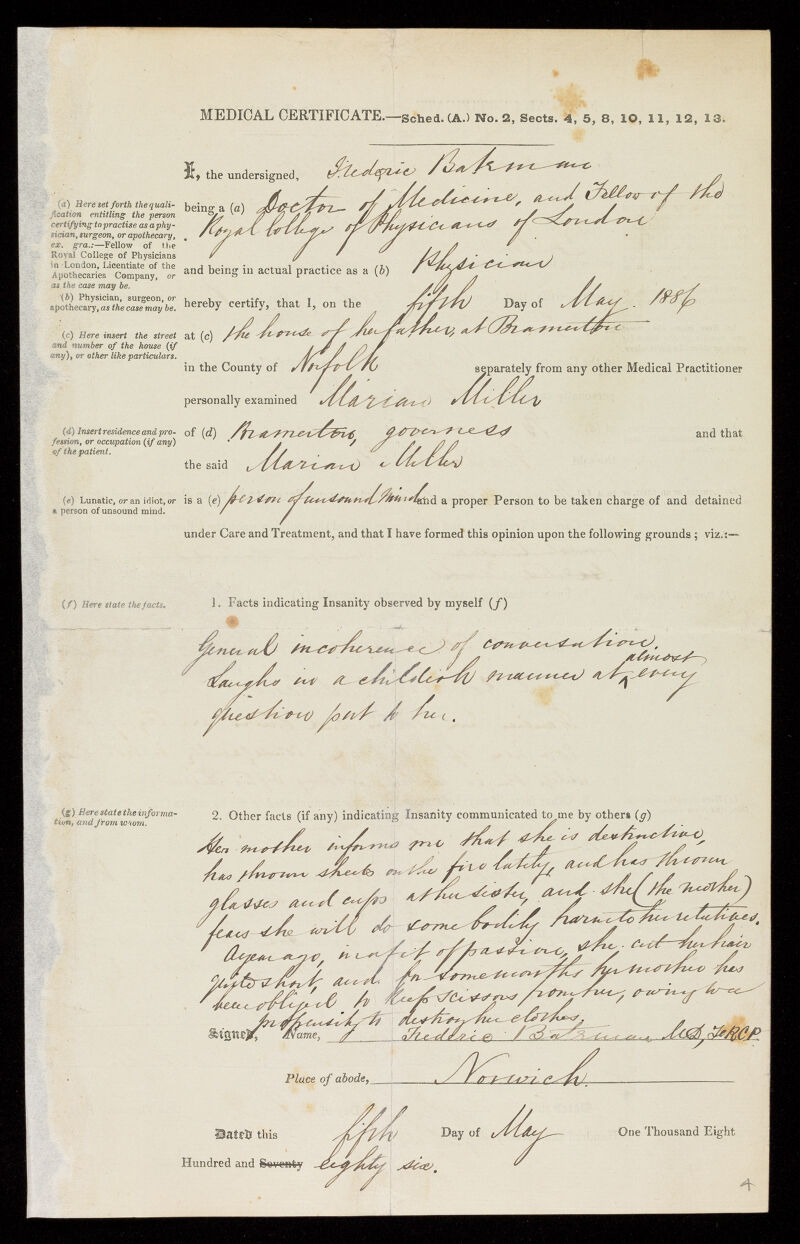 MEDICAL CERTIFICATE.—Sched. (A.) No. 2, Sects. 4, 5, 8, 10, 11, 12, 13.
I, the undersigned, Frederic Bateman
(a) Here set forth the quali-
fication entitling the person
certifying to practise as a phy-
sician, surgeon, or apothecary,
ex. gra.:—Fellow of the
Royal College of Physicians
in London, Licentiate of the
Apothecaries Company, or
as the case may be.
being a (a) Doctor of Medicine, and Fellow of the
Royal College of Physicians of London
and being in actual practice as a (b) Physician
(b) Physician, surgeon, or
apothecary, as the case may be.
hereby certify, that I, on the fifth Day of May 1886
(c) Here insert the street
and number of the house (if
any), or other like particulars.
at (c) the house of her father, at Bramerton
in the County of Norfolk separately from any other Medical Practitioner
personally examined Marian Miller
(d) Insert residence and pro-
fession, or occupation (if any)
of the patient.
of (d) Bramerton, governess and that
the said Marian Miller
(e) Lunatic, or an idiot, or
a person of unsound mind.
is a (e) person of unsound mind and a proper Person to be taken charge of and detained
under Care and Treatment, and that I have formed this opinion upon the following grounds; viz.:—
(f) Here state the facts.
1. Facts indicating Insanity observed by myself (f)
General incoherence of conversation.
Laughs in a childish manner at almost every
question put to her.
(g) Here state the informa-
tion, and from whom.
2. Other facts (if any) indicating Insanity communicated to me by others (g)
Her mother informs me that she is destructive,
has thrown sheets on the fire lately, and has thrown
glasses and cups at her sister, and she (the mother)
fears she will do some bodily harm to her relatives.
A year ago, in a fit of passion, she cut her hair
quite short, and for some months her mother has
been obliged to keep scissors from her, owing to a
propensity to destroy her clothes.
Signed, Name, Frederic Bateman MD, FRCP.
Place of abode, Norwich.
Dated this fifth Day of May One Thousand Eight
Hundred and Seventy eighty six.
4